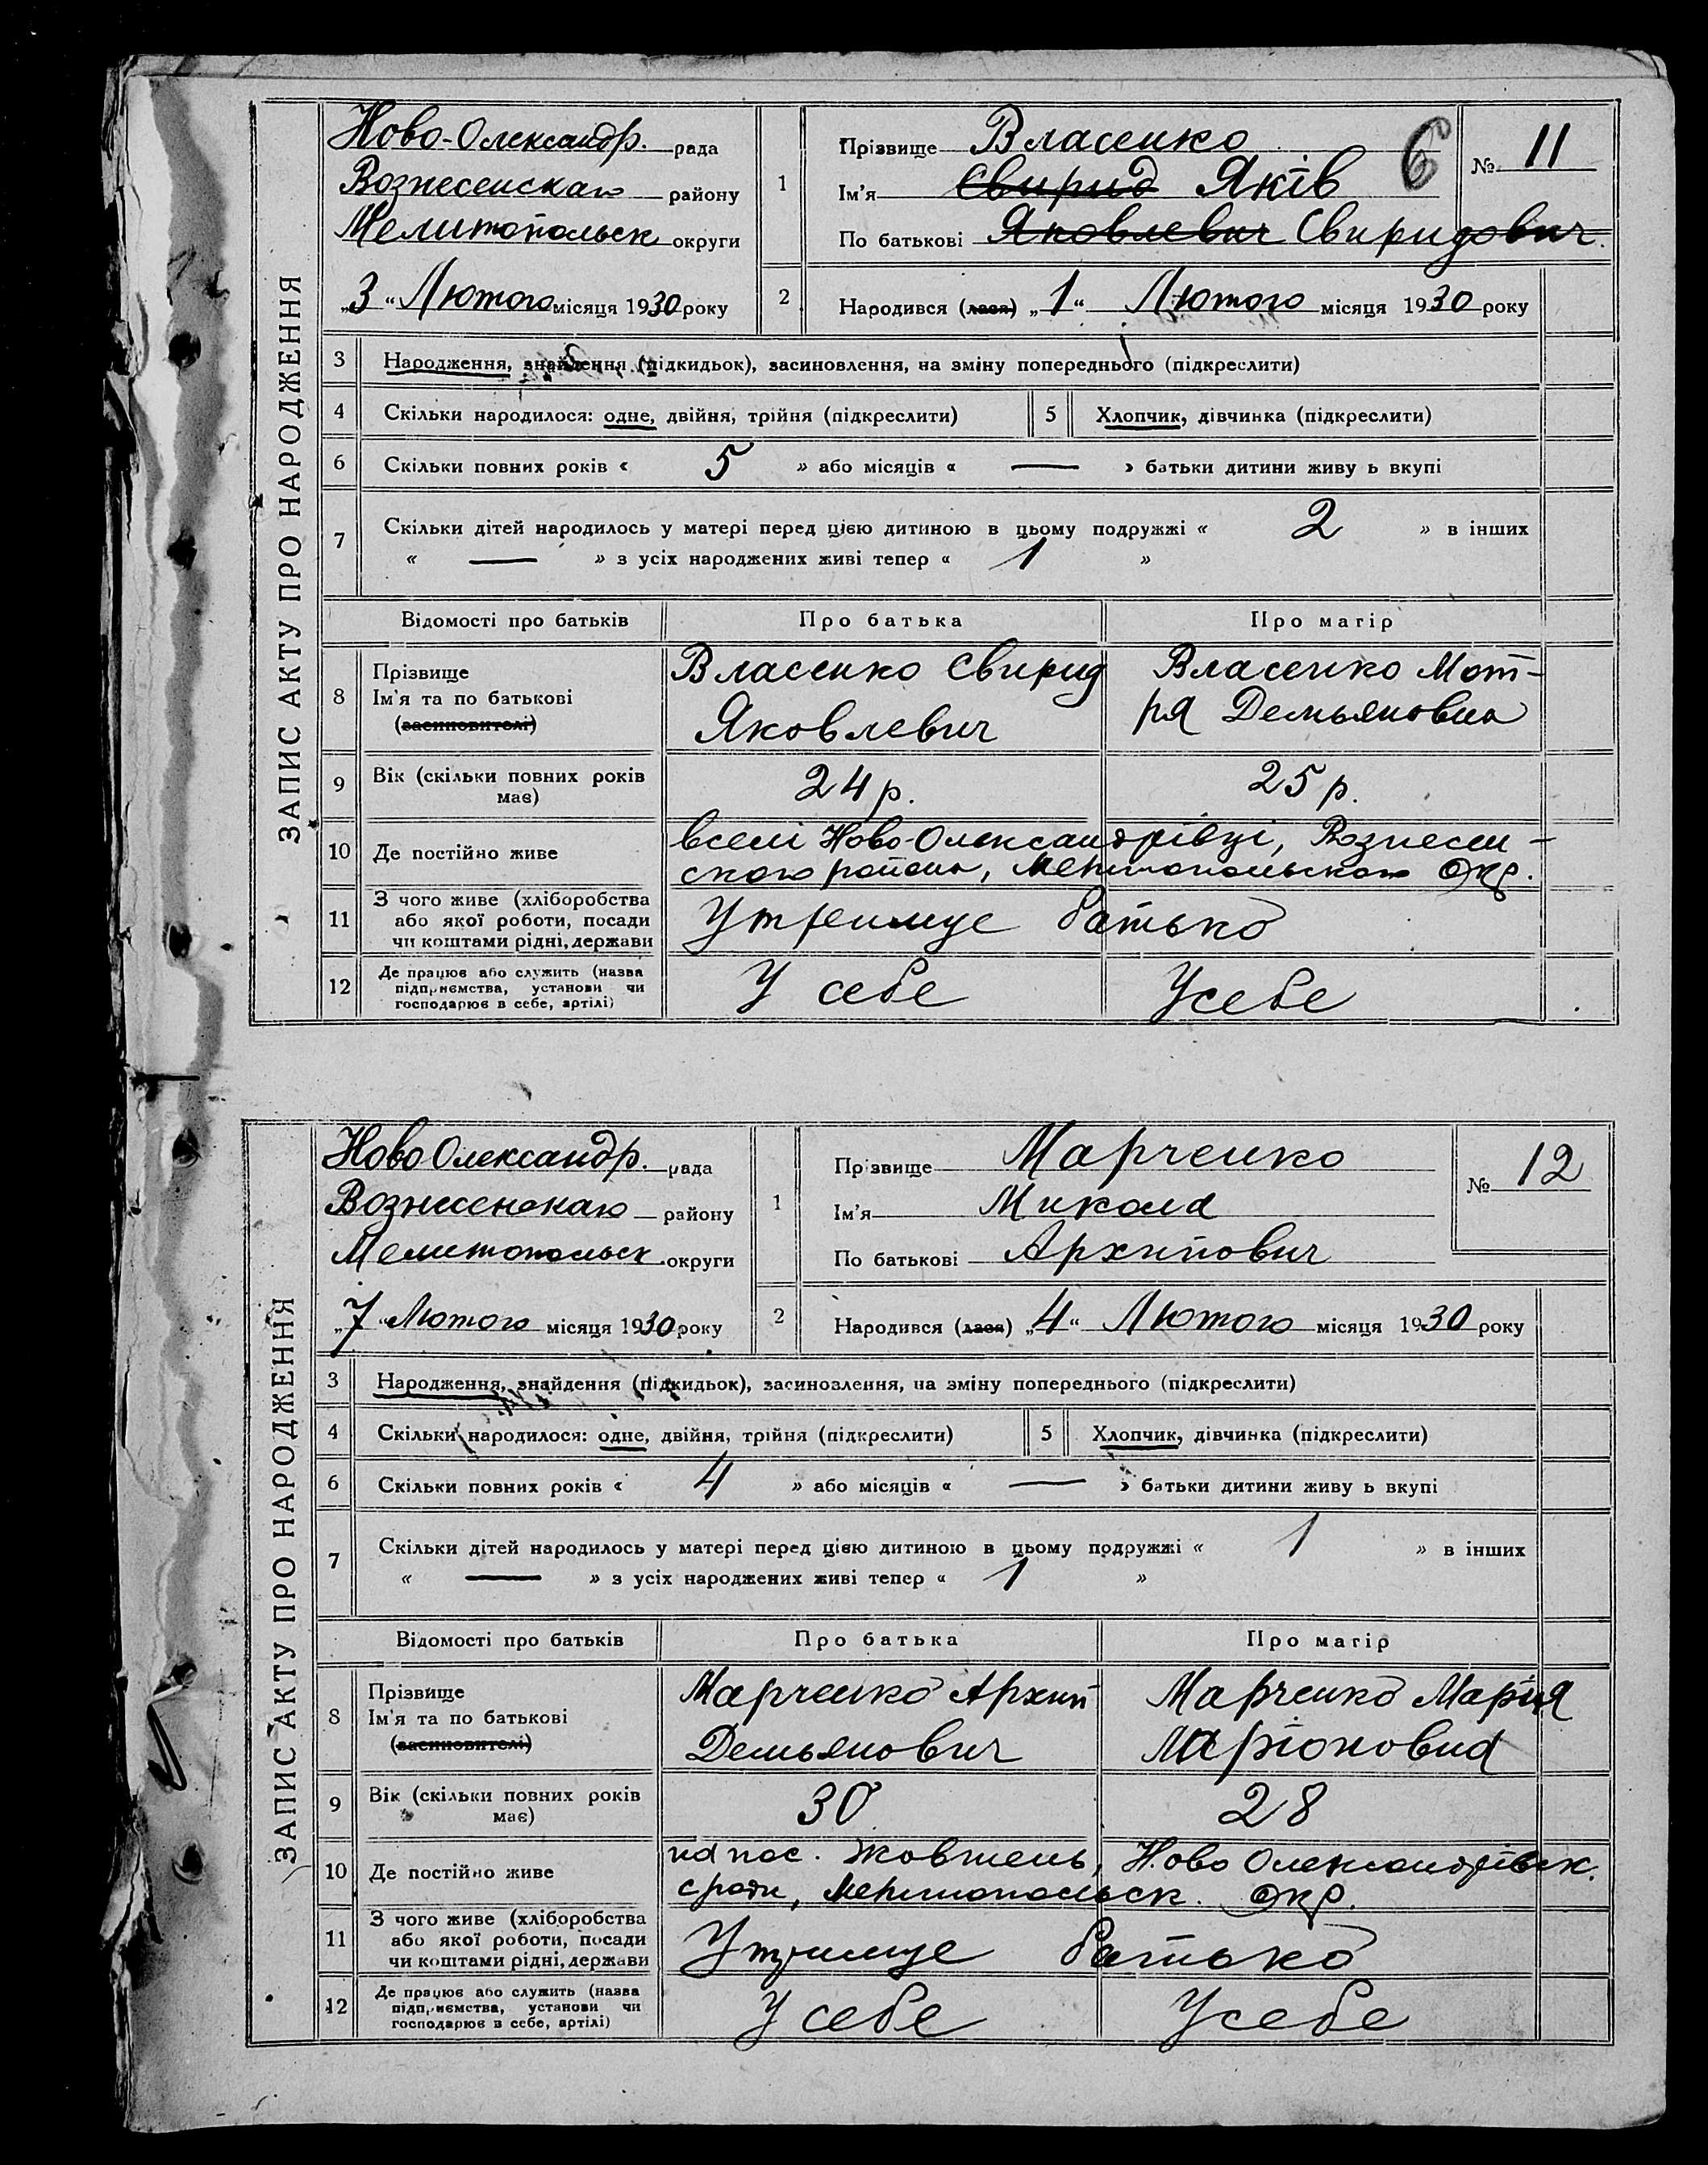 ЗАПИС АКТУ ПРО НАРОДЖЕННЯ
Ново-Олександр. рада
Вознесенскаго району
Мелитопольск округи
„3“ Лютого місяця 1930 року
1
Прізвище Власенко
Ім'я Свирид Яків
По батькові Яковлевич Свиридович.
6
№ 11
2
Народився (лася) „1“ Лютого місяця 1930 року
3 Народження, знайдення (підкидьок), засиновлення, на зміну попереднього (підкреслити)
4 Скільки народилося: одне, двійня, трійня (підкреслити) 5 Хлопчик, дівчинка (підкреслити)
6 Скільки повних років « 5 » або місяців « — » батьки дитини живу ь вкупі
7 Скільки дітей народилось у матері перед цією дитиною в цьому подружжі « 2 » в інших
« — » з усіх народжених живі тепер « 1 »
Відомості про батьків Про батька Про матір
8 Прізвище
Ім'я та по батькові
(засиновителі)
Власенко Свирид
Яковлевич
Власенко Мот-
ря Демьяновна
9 Вік (скільки повних років
має)
24 р. 25 р.
10 Де постійно живе
вселі Ново-Олександрівці, Вознесен-
ского района, Мелитопольскаго Окр.
11 З чого живе (хліборобства
або якої роботи, посади
чи коштами рідні, держави
Утримує батько
12 Де працює або служить (назва
підприємства, установи чи
господарює в себе, артілі)
У себе Усебе
ЗАПИС АКТУ ПРО НАРОДЖЕННЯ
Ново Олександр. рада
Вознесенскаго району
Мелитопольск. округи
„7“ Лютого місяця 1930 року
1
Прізвище Марченко
Ім'я Микола
По батькові Архипович
№ 12
2
Народився (лася) „4“ Лютого місяця 1930 року
3 Народження, знайдення (підкидьок), засиновлення, на зміну попереднього (підкреслити)
4 Скільки народилося: одне, двійня, трійня (підкреслити) 5 Хлопчик, дівчинка (підкреслити)
6 Скільки повних років « 4 » або місяців « — » батьки дитини живу ь вкупі
7 Скільки дітей народилось у матері перед цією дитиною в цьому подружжі « 1 » в інших
« — » з усіх народжених живі тепер « 1 »
Відомості про батьків Про батька Про матір
8 Прізвище
Ім'я та по батькові
(засиновителі)
Марченко Архип
Демьянович
Марченко Мария
Ларіоновна
9 Вік (скільки повних років
має)
30 28
10 Де постійно живе
на пос. Жовтень, Ново Олександрівск.
с/ради, Мелитопольск. Окр.
11 З чого живе (хліборобства
або якої роботи, посади
чи коштами рідні, держави
Утримує батько
12 Де працює або служить (назва
підприємства, установи чи
господарює в себе, артілі)
У себе Усебе